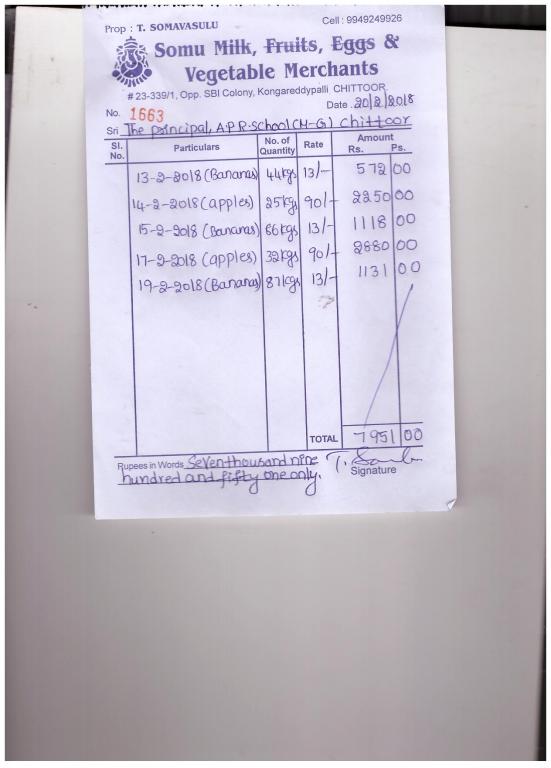 Prop : T. SOMAVASULU Cell : 9949249926
Somu Milk, Fruits, Eggs &
Vegetable Merchants
# 23-339/1, Opp. SBI Colony, Kongareddypalli CHITTOOR
No. 1663 Date. 20/2/2018
Sri The principal, A.P.R-School (M-G) Chittoor
Sl. No. Particulars No. of Quantity Rate Amount Rs. Ps.
13-2-2018 (Bananas) 44kgs 13/- 572 00
14-2-2018 (apples) 25kgs 90/- 2250 00
15-2-2018 (Bananas) 86kgs 13/- 1118 00
17-2-2018 (apples) 32kgs 90/- 2880 00
19-2-2018 (Bananas) 87kgs 13/- 1131 00
TOTAL 7951 00
Rupees in Words Seven thousand nine
hundred and fifty one only.
Signature